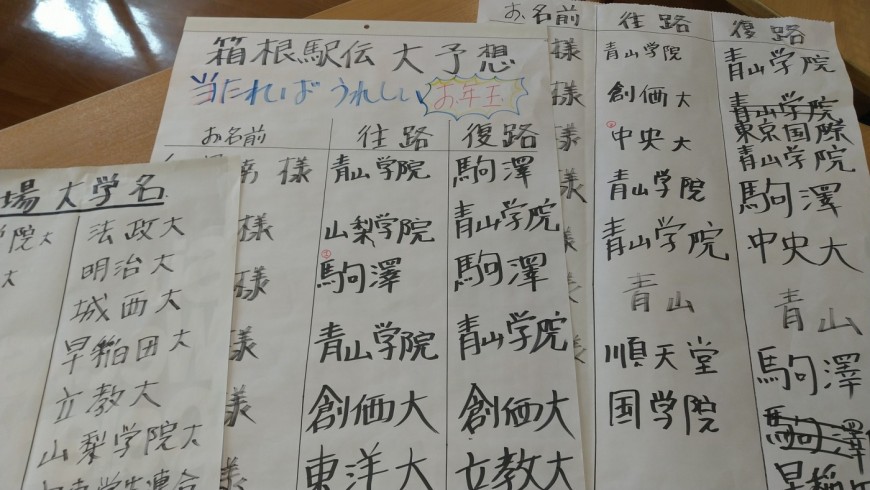 場大学名
学院大 法政大
大 明治大
城西大
早稲田大
立教大
山梨学院大
学生連合
箱根駅伝 大予想
当たればうれしい お年玉
お名前 往路 復路
様 青山学院 駒澤
様 山梨学院 青山学院
様 駒澤 駒澤
様 青山学院 青山学院
様 創価大 創価大
様 東洋大 立教大
お名前 往路 復路
様 青山学院 青山学院
様 創価大 青山学院
東京国際
様 中央大 青山学院
青山学院 駒澤
青山学院 中央大
青山 青山
順天堂 駒澤
国学院 駒澤
早稲